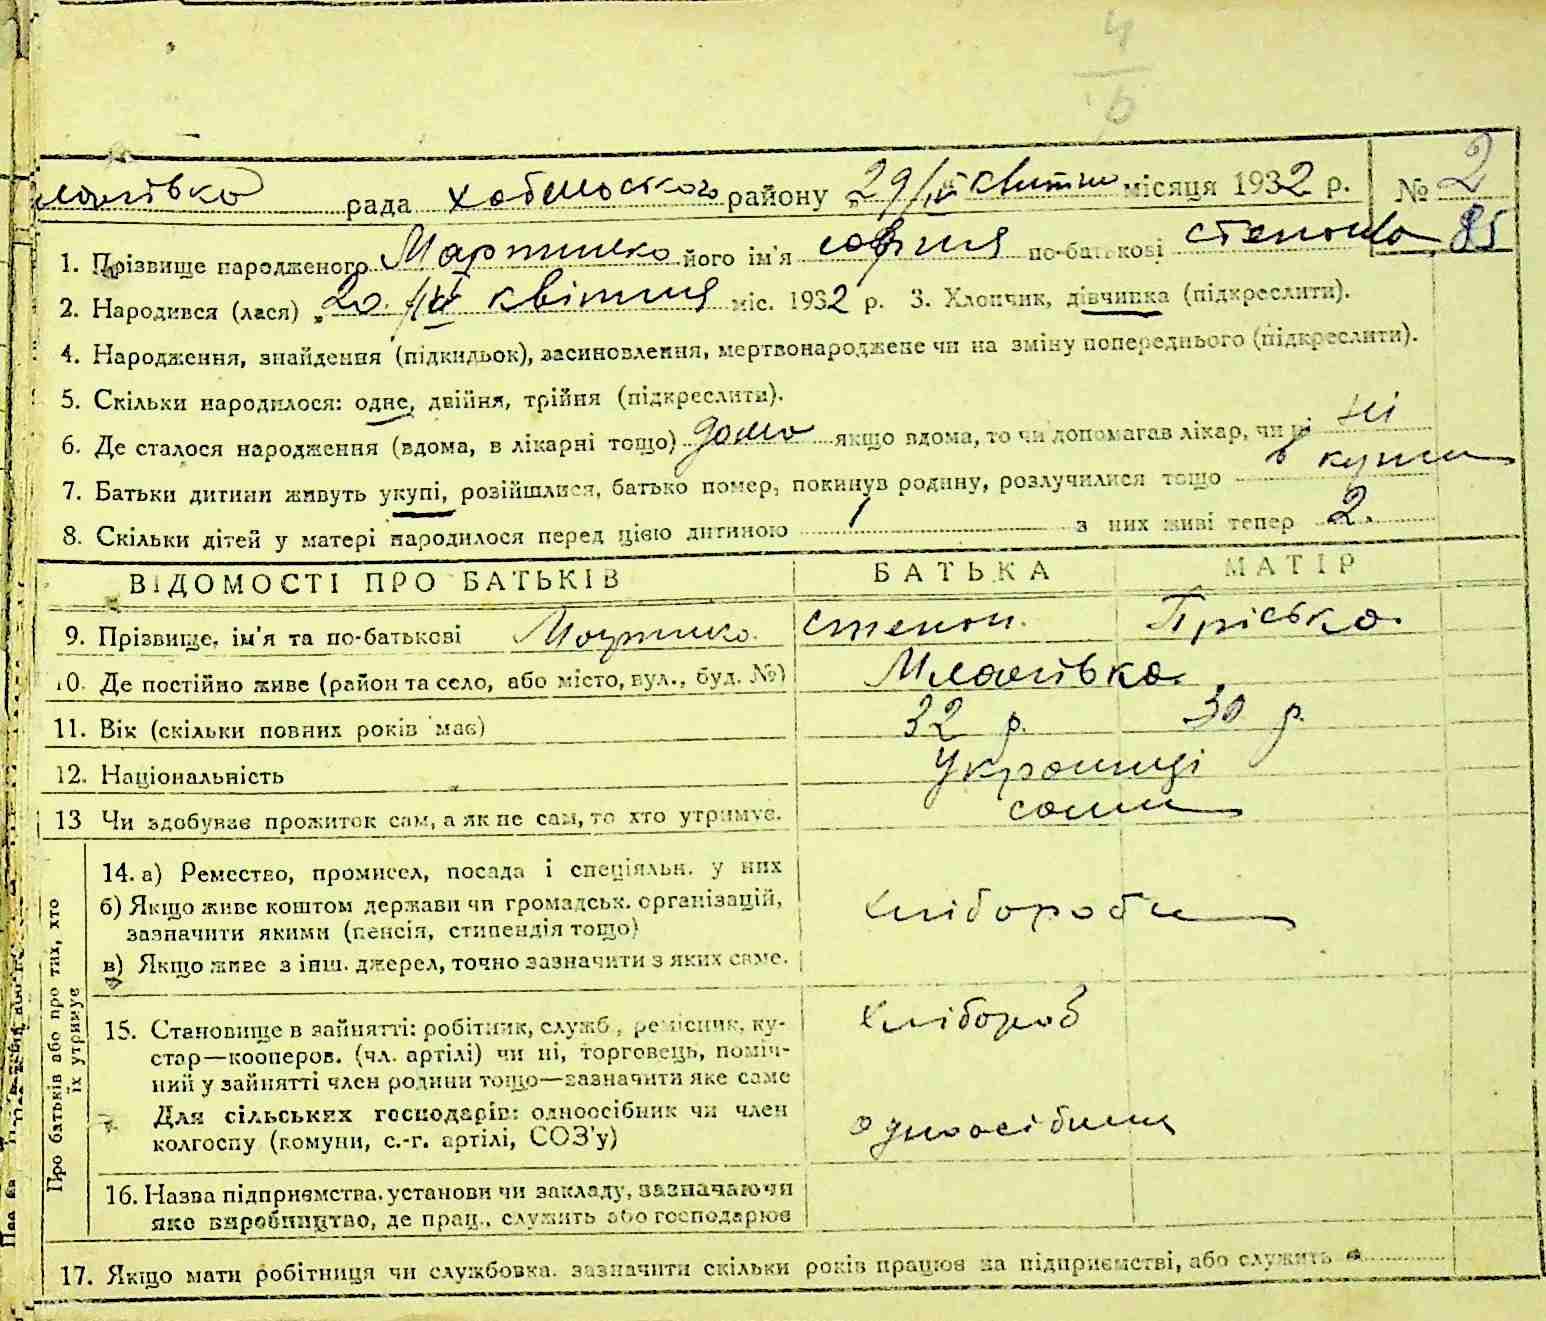 4
рада Хабенського району 29/IV квітня місяця 1932 р. № 2
1. Прізвище народженого Мартинко його ім'я по-батькові 85
2. Народився (лася) „20./IV квітня міс. 1932 р. 3. Хлопчик, дівчинка (підкреслити).
4. Народження, знайдення (підкидьок), засиновлення, мертвонароджене чи на зміну попереднього (підкреслити).
5. Скільки народилося: одне, двійня, трійня (підкреслити).
6. Де сталося народження (вдома, в лікарні тощо) дома якщо вдома, то чи допомагав лікар, чи ні
7. Батьки дитини живуть укупі, розійшлися, батько помер, покинув родину, розлучилися тощо в купи
8. Скільки дітей у матері народилося перед цією дитиною 1 з них живі тепер 2.
ВІДОМОСТІ ПРО БАТЬКІВ БАТЬКА МАТІР
9. Прізвище, ім'я та по-батькові Мартинко. степан. Пріська.
10. Де постійно живе (район та село, або місто, вул., буд. №)
11. Вік (скільки повних років має) 32 р. 30 р.
12. Національність Українці
13 Чи здобуває прожиток сам, а як не сам, то хто утримує. сами
Про батьків або про тих, хто їх утримує
14. а) Ремество, промисел, посада і спеціяльн. у них
б) Якщо живе коштом держави чи громадськ. організацій, хлібороби
зазначити якими (пенсія, стипендія тощо)
в) Якщо живе з інш. джерел, точно зазначити з яких саме.
15. Становище в зайнятті: робітник, служб., ремісник, ку- хлібороб
стар—кооперов. (чл. артілі) чи ні, торговець, поміч-
ний у зайнятті член родини тощо—зазначити яке саме
Для сільських господарів: одноосібник чи член одноосібник
колгоспу (комуни, с.-г. артілі, СОЗ'у)
16. Назва підприємства, установи чи закладу, зазначаючи
яке виробництво, де прац., служить або господарює
17. Якщо мати робітниця чи службовка, зазначити скільки років працює на підприємстві, або служить